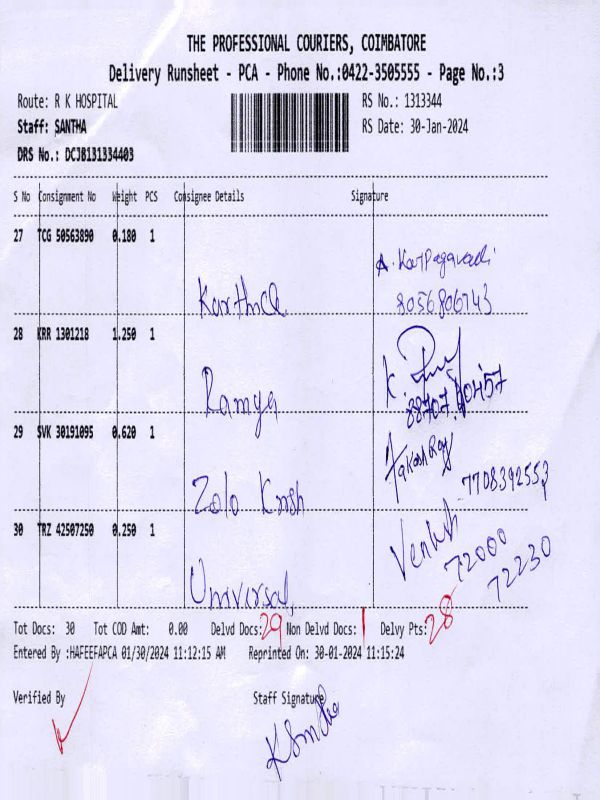 THE PROFESSIONAL COURIERS, COIMBATORE
Delivery Runsheet - PCA - Phone No.:0422-3505555 - Page No.:3
Route: R K HOSPITAL RS No.: 1313344
Staff: SANTHA RS Date: 30-Jan-2024
DRS No.: DCJB131334403
S No Consignment No Weight PCS Consignee Details Signature
27 TCG 50563890 0.180 1
A. Karpagavalli
Karthick 8056806743
28 KRR 1301218 1.250 1
K.
Ramya 88707 10457
29 SVK 30191095 0.620 1
Zolo Krish 7708392553
30 TRZ 42507250 0.250 1
Venkat 72000
Universal, 72230
Tot Docs: 30 Tot COD Amt: 0.00 Delvd Docs: 29 Non Delvd Docs: 1 Delvy Pts: 28
Entered By :HAFEEFAPCA 01/30/2024 11:12:15 AM Reprinted On: 30-01-2024 11:15:24
Verified By Staff Signature